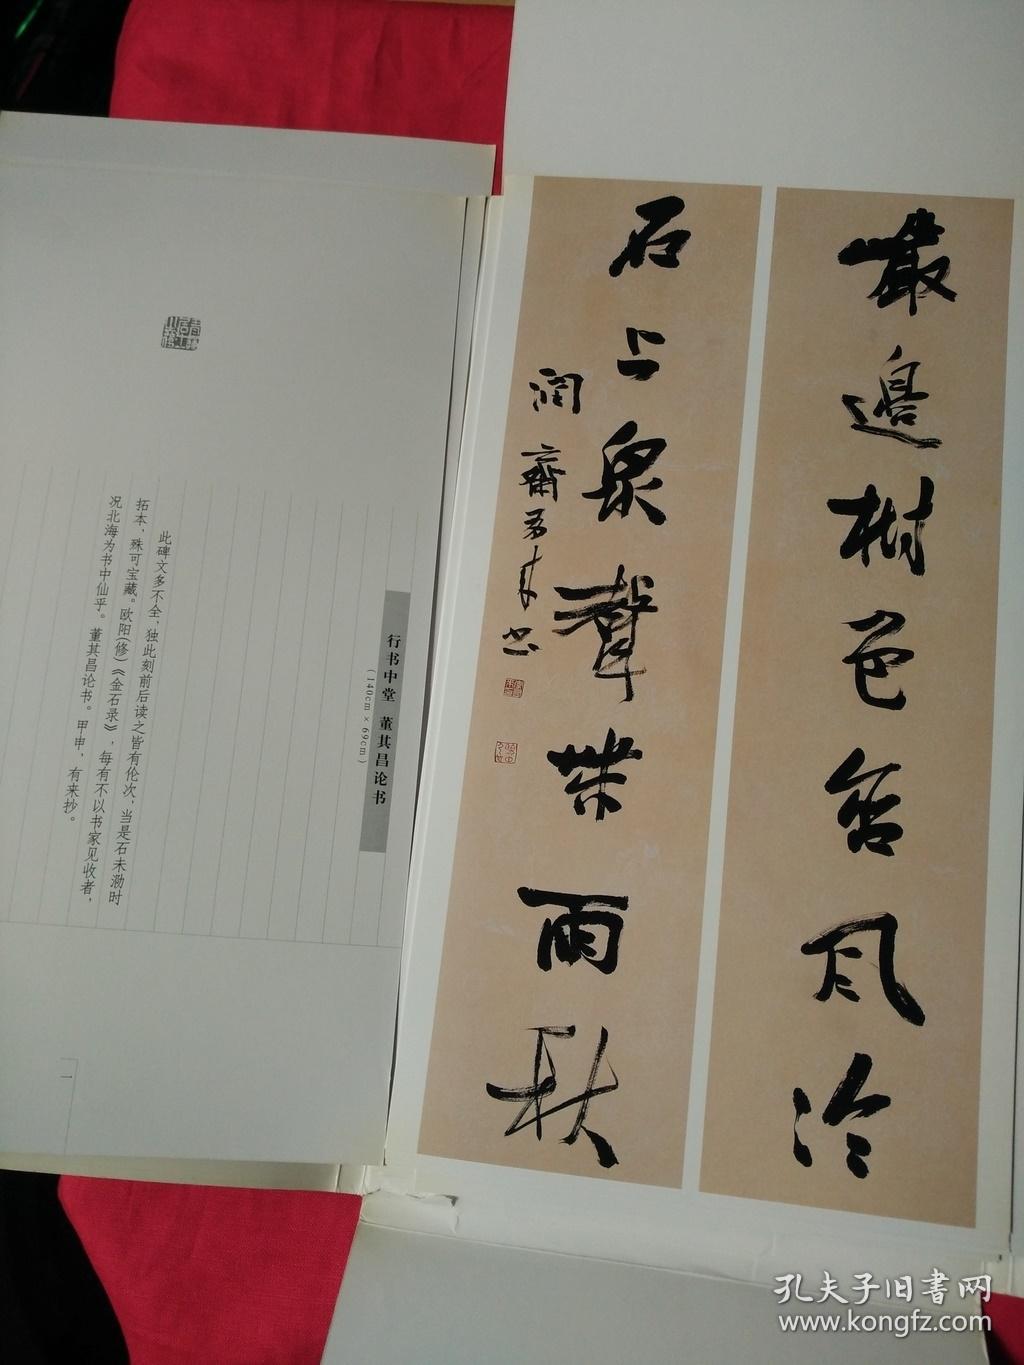 巖邊樹色含風冷
石上泉聲帶雨秋
潤齋有来书
行书中堂 董其昌论书
(140cm×69cm)
此碑文多不全，独此刻前后读之皆有伦次，当是石未泐时
拓本，殊可宝藏。欧阳(修)《金石录》，每有不以书家见收者，
况北海为书中仙乎。董其昌论书。甲申，有来抄。
一
孔夫子旧书网
www.kongfz.com